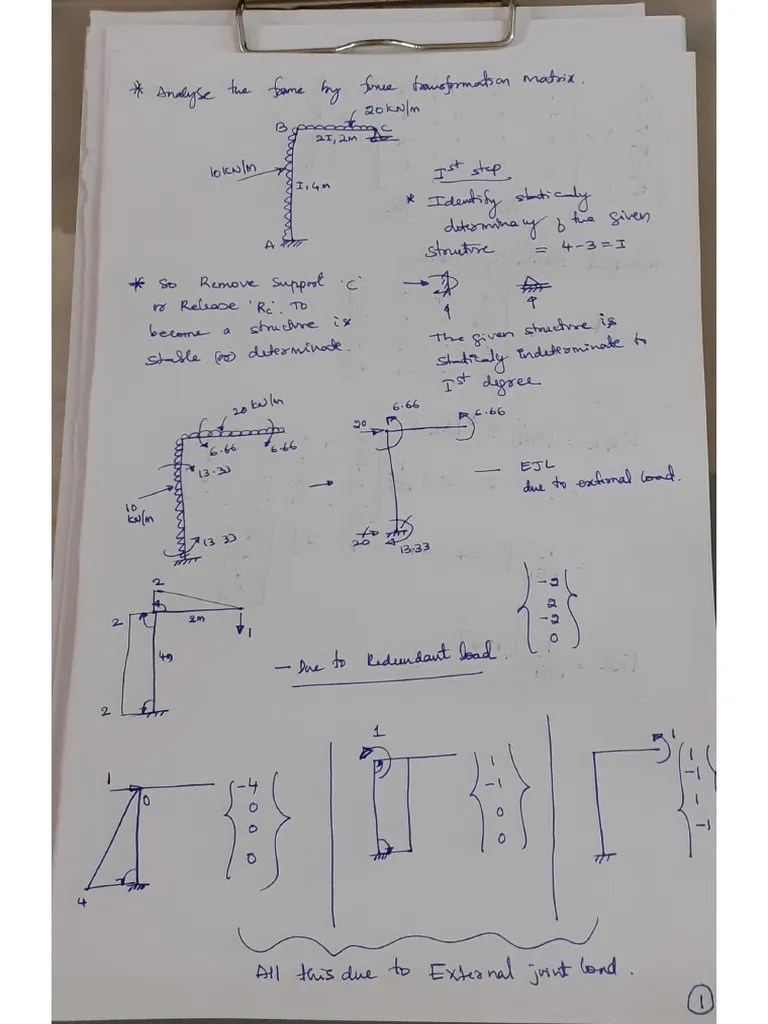 * Analyse the frame by force transformation matrix.
20 kN/m
B
C
2I, 2m
10 kN/m
I, 4m
A
Ist step
* Identify staticaly
determinacy of the given
structure = 4-3=I
* So Remove Support 'C'
or Release 'Rc'. To
become a structure is
stable (or) determinate.
The given structure is
staticaly indeterminate to
Ist degree
20 kN/m
6.66
6.66
13.33
10
kN/m
13.33
20
6.66
6.66
20
13.33
— EJL
due to external load.
2
2
2m
1
4m
2
-2
2
-2
0
— Due to Redundant load.
1
0
4
-4
0
0
0
1
1
-1
0
0
1
1
-1
1
-1
All this due to External joint load.
1